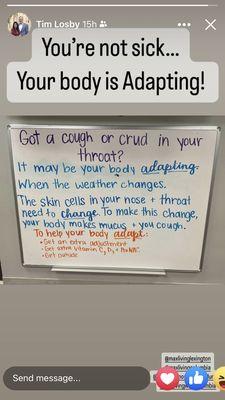 Tim Losby 15h
You're not sick...
Your body is Adapting!
Got a cough or crud in your
throat?
It may be your body adapting.
When the weather changes.
The skin cells in your nose + throat
need to change. To make this change,
your body makes mucus + you cough.
To help your body adapt:
• Get an extra adjustement
• Get extra Vitamin C, D3 +
• Get outside
@maxlivinglexington
Send message...